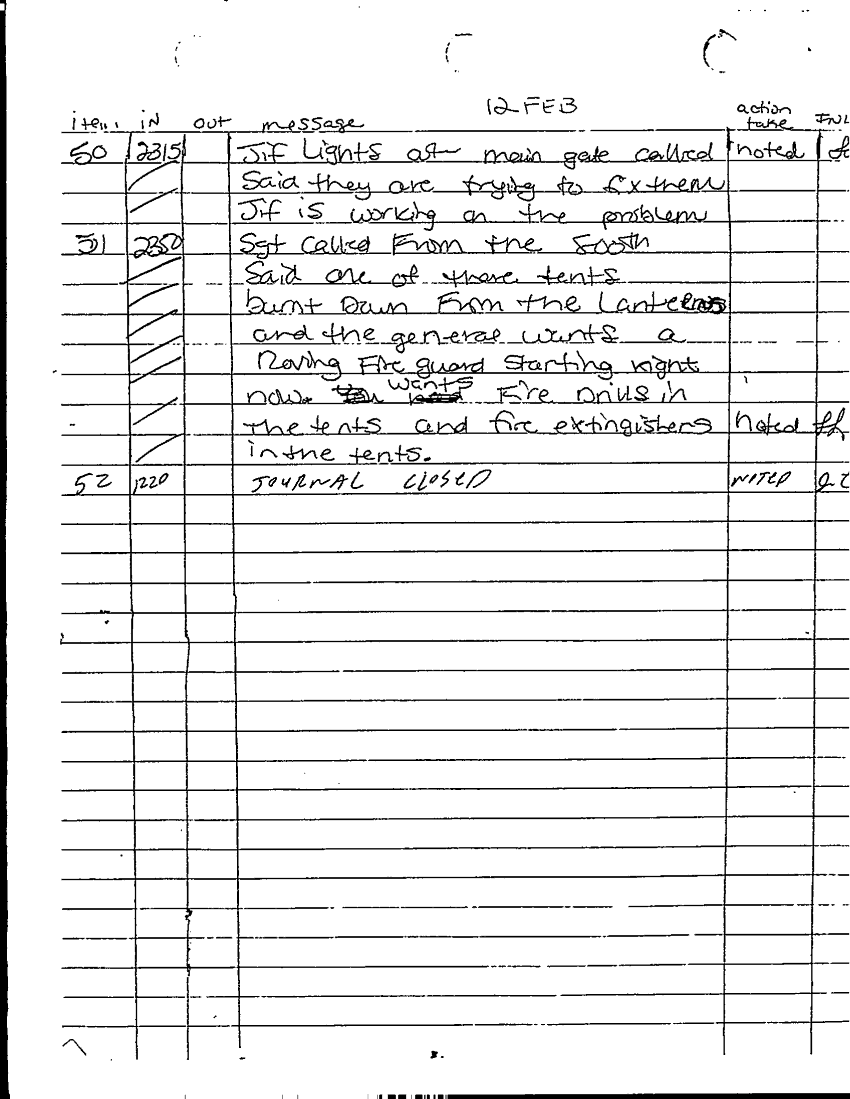 12 FEB
item IN out message action take INL
50 2315 Jif Lights at main gate called noted
Said they are trying to fix them
Jif is working on the problem
51 2350 Sgt called From the South
Said one of there tents
burnt Down From the Lanterns
and the general wants a
Roving Fire guard starting right
now. wants Fire Drills in
the tents and fire extingishers noted
in the tents.
52 1220 JOURNAL CLOSED NOTED